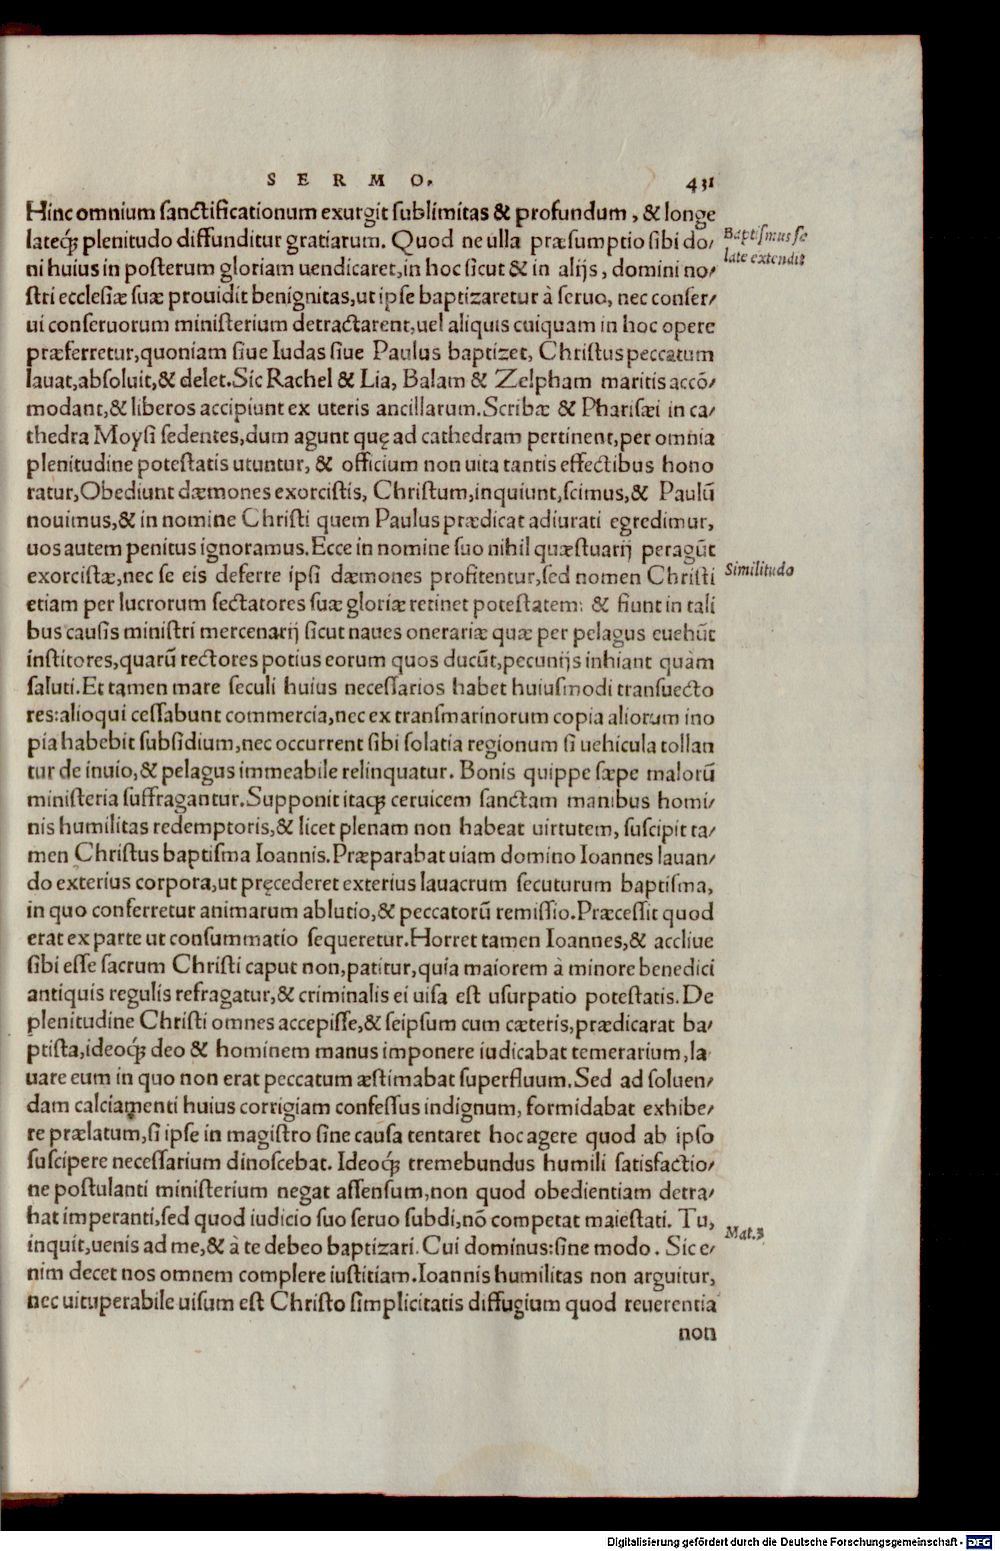 SERMO. 431
Hinc omnium sanctificationum exurgit sublimitas & profundum, & longe
lateq́; plenitudo diffunditur gratiarum. Quod ne ulla præsumptio sibi do/
ni huius in posterum gloriam uendicaret, in hoc sicut & in alijs, domini no/
stri ecclesiæ suæ prouidit benignitas, ut ipse baptizaretur à seruo, nec conser/
ui conseruorum ministerium detractarent, uel aliquis cuiquam in hoc opere
præferretur, quoniam siue Iudas siue Paulus baptizet, Christus peccatum
lauat, absoluit, & delet. Sic Rachel & Lia, Balam & Zelpham maritis accō/
modant, & liberos accipiunt ex uteris ancillarum. Scribæ & Pharisæi in ca/
thedra Moysi sedentes, dum agunt quę ad cathedram pertinent, per omnia
plenitudine potestatis utuntur, & officium non uita tantis effectibus hono
ratur, Obediunt dæmones exorcistis, Christum, inquiunt, scimus, & Paulū
nouimus, & in nomine Christi quem Paulus prædicat adiurati egredimur,
uos autem penitus ignoramus. Ecce in nomine suo nihil quæstuarij peragūt
exorcistæ, nec se eis deferre ipsi dæmones profitentur, sed nomen Christi
etiam per lucrorum sectatores suæ gloriæ retinet potestatem: & fiunt in tali
bus causis ministri mercenarij sicut naues onerariæ quæ per pelagus euehūt
institores, quarū rectores potius eorum quos ducūt, pecunijs inhiant quàm
saluti. Et tamen mare seculi huius necessarios habet huiusmodi transuecto
res: alioqui cessabunt commercia, nec ex transmarinorum copia aliorum ino
pia habebit subsidium, nec occurrent sibi solatia regionum si uehicula tollan
tur de inuio, & pelagus immeabile relinquatur. Bonis quippe sæpe malorū
ministeria suffragantur. Supponit itaq; ceruicem sanctam manibus homi/
nis humilitas redemptoris, & licet plenam non habeat uirtutem, suscipit ta/
men Christus baptisma Ioannis. Præparabat uiam domino Ioannes lauan/
do exterius corpora, ut pręcederet exterius lauacrum secuturum baptisma,
in quo conferretur animarum ablutio, & peccatorū remissio. Præcessit quod
erat ex parte ut consummatio sequeretur. Horret tamen Ioannes, & accliue
sibi esse sacrum Christi caput non, patitur, quia maiorem à minore benedici
antiquis regulis refragatur, & criminalis ei uisa est usurpatio potestatis. De
plenitudine Christi omnes accepisse, & seipsum cum cæteris, prædicarat ba/
ptista, ideoq́; deo & hominem manus imponere iudicabat temerarium, la
uare eum in quo non erat peccatum æstimabat superfluum. Sed ad soluen/
dam calciamenti huius corrigiam confessus indignum, formidabat exhibe/
re prælatum, si ipse in magistro sine causa tentaret hoc agere quod ab ipso
suscipere necessarium dinoscebat. Ideoq́; tremebundus humili satisfactio/
ne postulanti ministerium negat assensum, non quod obedientiam detra/
hat imperanti, sed quod iudicio suo seruo subdi, nō competat maiestati. Tu,
inquit, uenis ad me, & à te debeo baptizari. Cui dominus: sine modo. Sic e/
nim decet nos omnem complere iustitiam. Ioannis humilitas non arguitur,
nec uituperabile uisum est Christo simplicitatis diffugium quod reuerentia
non
Baptismus se
late extendit
Similitudo
Mat.3
Digitalisierung gefördert durch die Deutsche Forschungsgemeinschaft - DFG